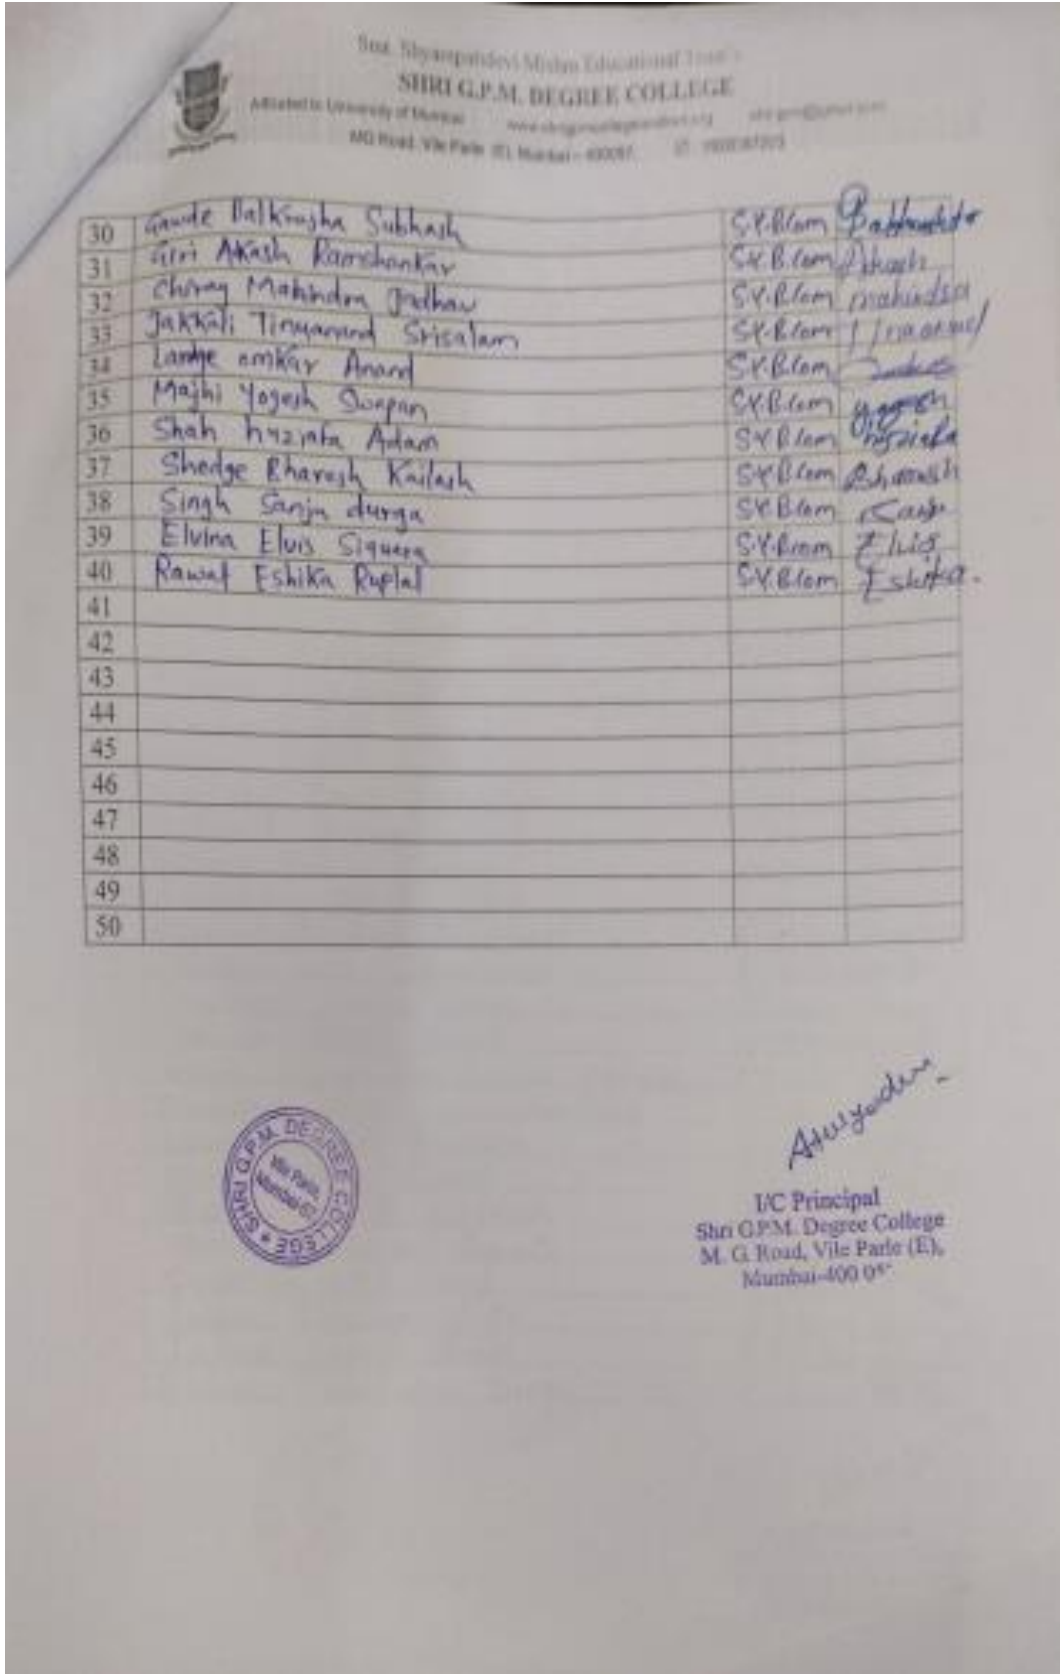 Smt. Shyampatidevi Mishra Educational Trust's
SHRI G.P.M. DEGREE COLLEGE
Affiliated to University of Mumbai
MG Road, Vile Parle (E), Mumbai - 400057.
30 Gawde Balkrusha Subhash S.Y.B.Com
31 Giri Akash Ramshankar S.Y.B.Com Akash
32 Chirag Mahindra Jadhav S.Y.B.Com mahindra
33 Jakkali Tirumanand Srisalam S.Y.B.Com
34 Landge omkar Anand S.Y.B.Com
35 Majhi Yogesh Swapan S.Y.B.Com yogesh
36 Shah huziafa Adam S.Y.B.Com huziafa
37 Shedge Bhavesh Kailash S.Y.B.Com Bhavesh
38 Singh Sanju durga S.Y.B.Com Sanju
39 Elvina Elvis Siquera S.Y.B.com Elvis
40 Rawat Eshika Ruplal S.Y.B.Com Eshika.
41
42
43
44
45
46
47
48
49
50
SHRI G.P.M. DEGREE COLLEGE
Vile Parle,
Mumbai-57
I/C Principal
Shri G.P.M. Degree College
M. G. Road, Vile Parle (E),
Mumbai-400 05